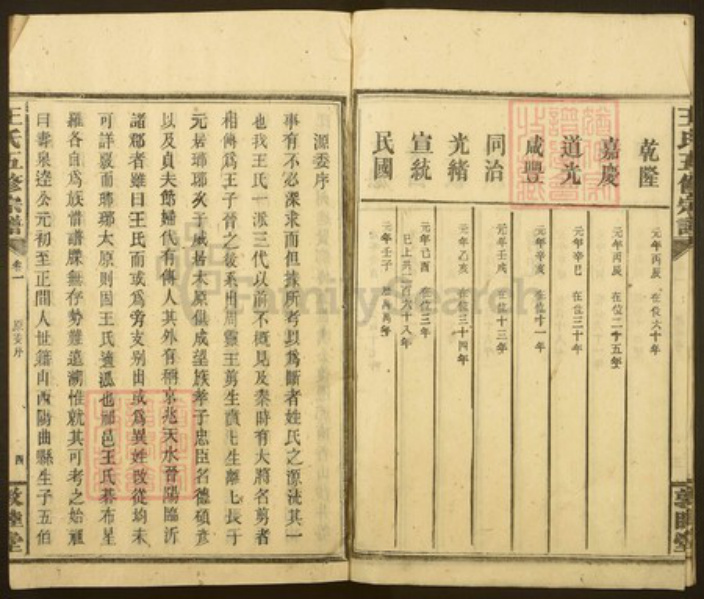 王氏五修宗譜
敦睦堂
乾隆 元年丙辰 在位六十年
嘉慶 元年丙辰 在位二十五年
道光 元年辛巳 在位三十年
咸豐 元年辛亥 在位十一年
同治 元年壬戌 在位十三年
光緒 元年乙亥 在位三十四年
宣統 元年己酉 在位三年
已上共二百六十八年
民國 元年壬子 萬萬年
源委序
事有不必深求而但據所考以為斷者姓氏之源流其一
也我王氏一派三代以前不概見及秦時有大將名翦者
相傳為王子晉之後系出周靈王翦生賁賁生離七長子
元居瑯琊次子威居太原俱成望族孝子忠臣名德碩彥
以及貞夫節婦代有傳人其外有稱京兆天水晉陽臨沂
諸郡者雖曰王氏而或為旁支别出或為異姓改從均未
可詳覈而瑯琊太原則固王氏適派也邢邑王氏碁布星
羅各自為族惜譜牒無存勢難追溯惟就其可考之始祖
曰壽泉逵公元初至正間人世籍山西陽曲縣生子五伯
王氏五修宗譜 卷一 源委序 四 敦睦堂
FamilySearch